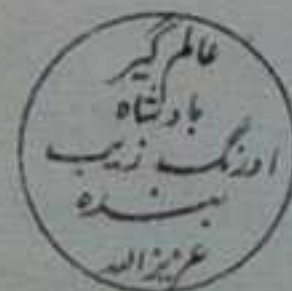 عالم گیر
بادشاہ
اورنگ زیب
بندہ
عزیز اللہ